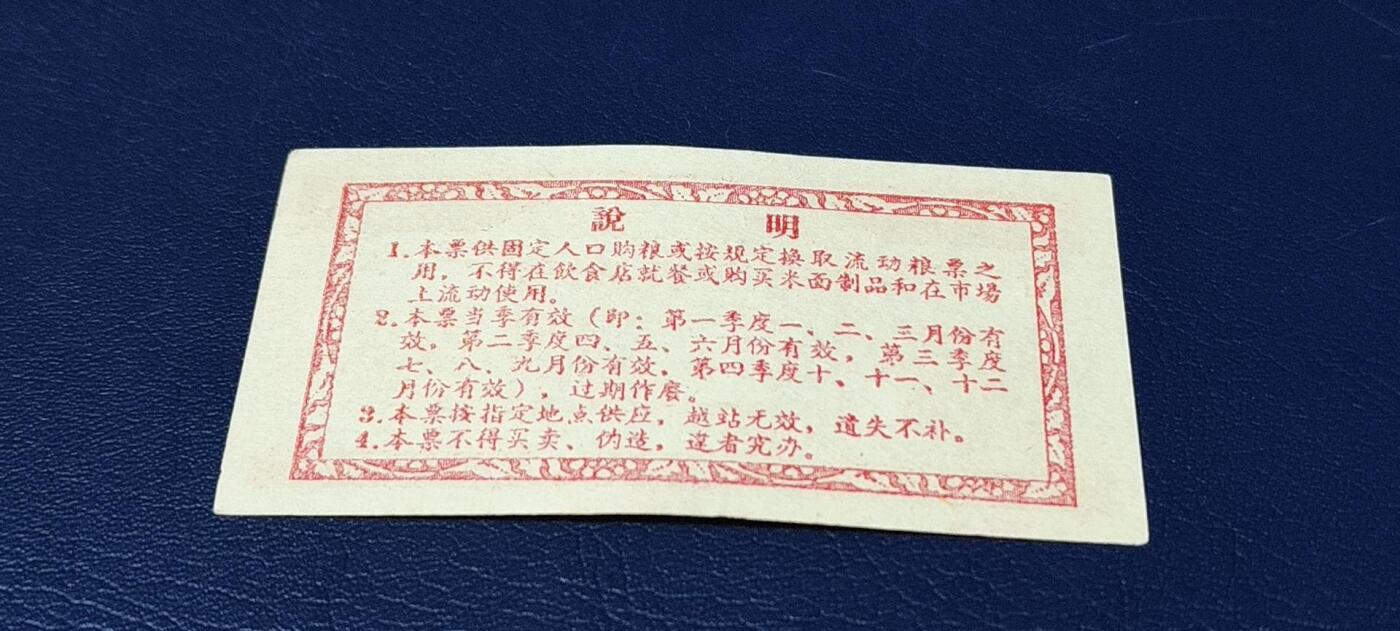 說 明
1.本票供固定人口购粮或按规定換取流动粮票之
用。不得在飲食店就餐或购买米面制品和在市場
上流动使用。
2.本票当季有效（即：第一季度一、二、三月份有
效，第二季度四、五、六月份有效，第三季度
七、八、九月份有效，第四季度十、十一、十二
月份有效），过期作廢。
3.本票按指定地点供应，越站无效，遺失不补。
4.本票不得买卖、伪造，違者究办。